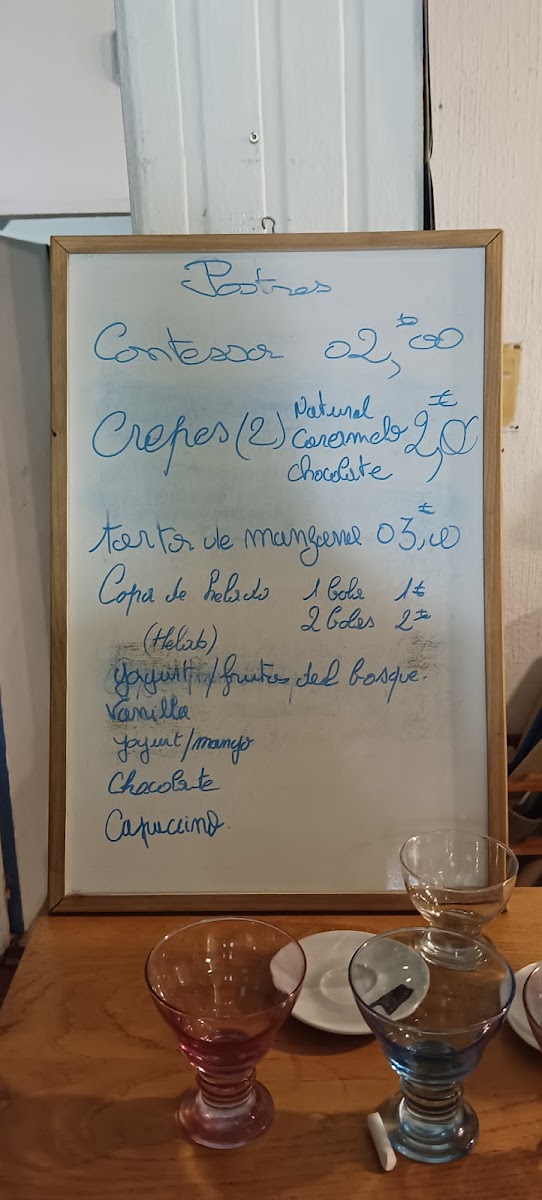 Postres
Contessa 02,€00
Crepes (2) Natural
Caramelo 2,€0
chocolate
tarta de manzana 03,€00
Copa de helado 1 bola 1€
2 bolas 2€
(Helado)
yogurt/frutas del bosque.
Vanilla
yogurt/mango
Chocolate
Capuccino.